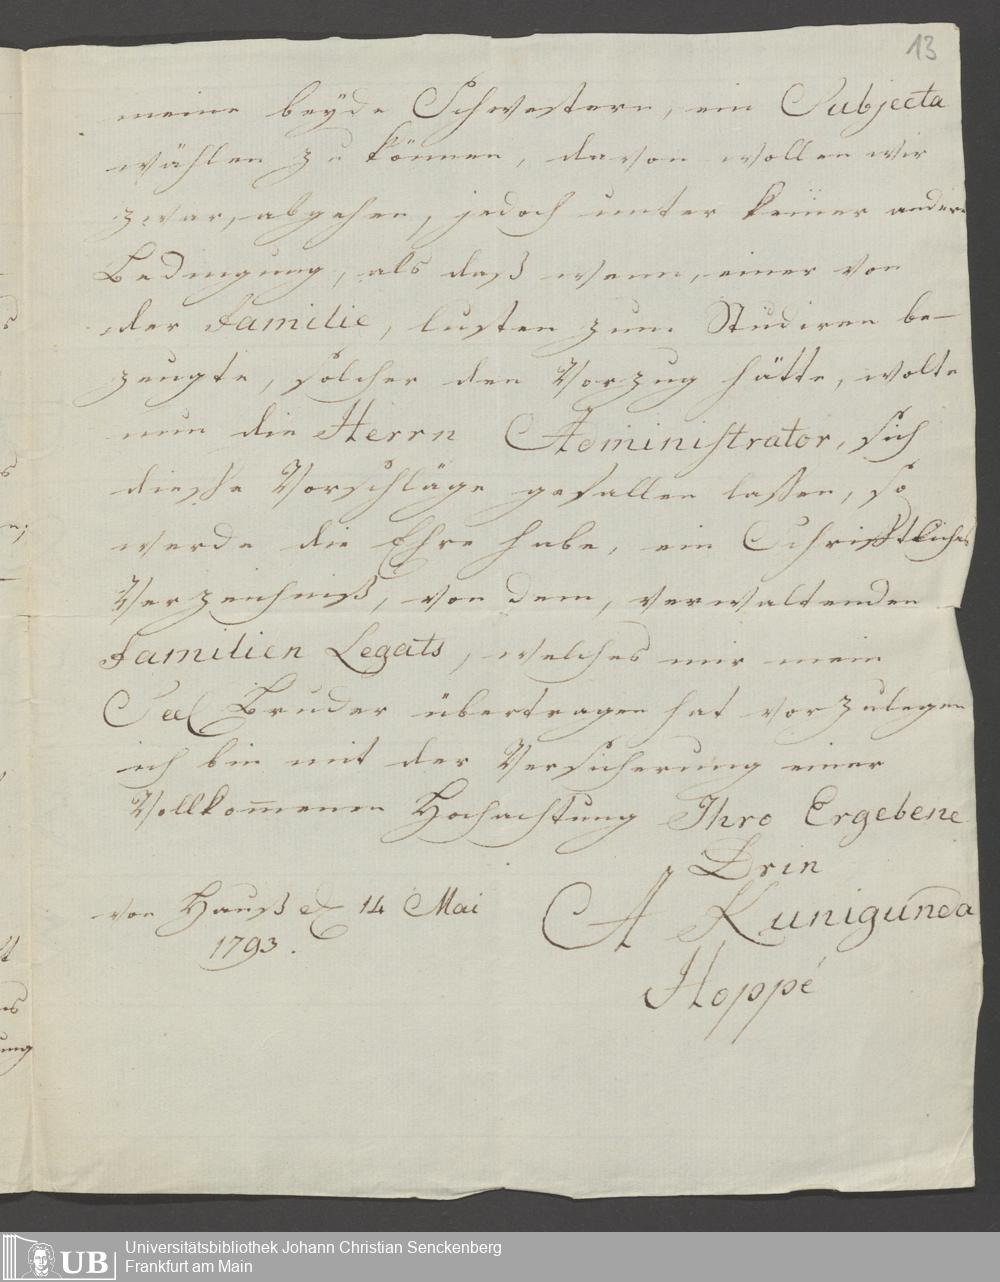 13
meine beÿde Schwestern, ein Subjecta
wählen zu können, davon wollen wir
zwar, abgehen, jedoch unter keiner andern
Bedingung, als daß wenn, einer von
der Familie, lusten zum Studiren be-
zeugte, solcher den Vorzug hätte, wolte
nun die Herrn Administrator, sich
diesse Vorschläge gefallen lassen, so
werde die Ehre habe, ein Schrifftliches
Verzeichniß, von dem, verwaltenden
Familien Legats, welches mir mein
Seel Bruder übertragen hat vorzulegen
ich bin mit der Versicherung einer
Vollkom̅enen Hochachtung Ihro Ergebene
Drin
von Hauß d 14 Mai
1793.
A Kunigunda
Hoppé
UB
Universitätsbibliothek Johann Christian Senckenberg
Frankfurt am Main